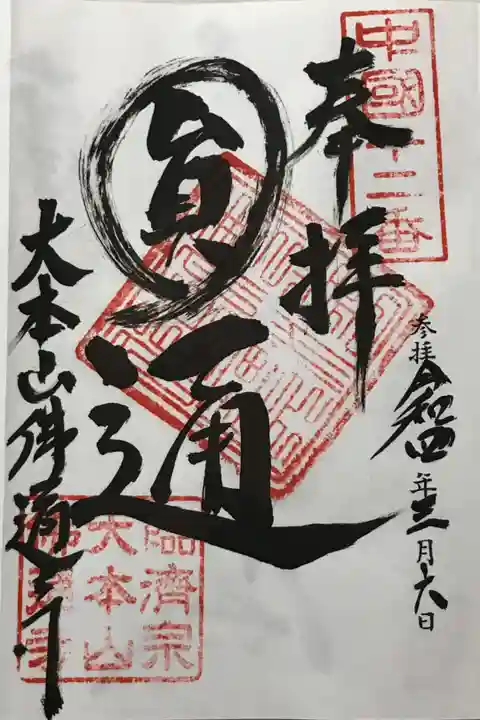 中國十二番
奉拝
参拝 令和四年三月六日
圓通
大本山佛通寺
臨済宗
大本山
佛通寺